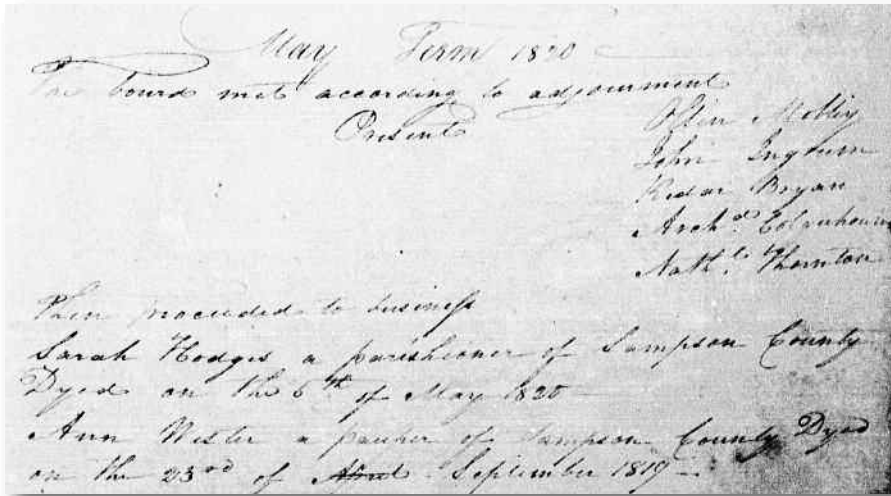 May Term 1820
The board met according to adjournment
Present
Ollin Mobley
John Ingram
Kedar Bryan
Arch.d Culbreth
Nath.l Thornton
Then proceeded to business
Sarah Hodges a parishioner of Sampson County
Dyed on the 6th of May 1820
Ann Wister a pauper of Sampson County Dyed
on the 23rd of September 1819